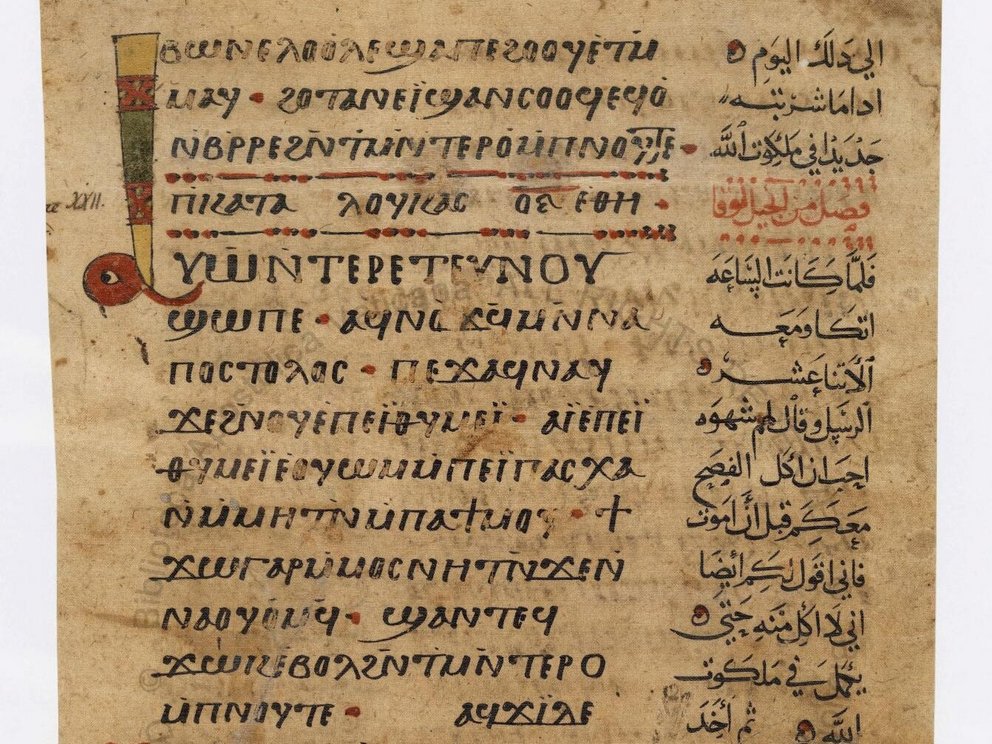 ⲃⲱⲛⲉⲗⲟⲟⲗⲉϣⲁⲡⲉϩⲟⲟⲩⲉⲧⲙ̄
ⲙⲁⲩ · ϩⲟⲧⲁⲛⲉⲓ̈ϣⲁⲛⲥⲟⲟϥⲉϥⲟ̇
ⲛ̇ⲃⲣⲣⲉϩⲛ̄ⲧⲙⲛ̄ⲧⲉⲣⲟⲙ̇ⲡⲛⲟⲩⲧⲉ ·
ⲡⲕⲁⲧⲁ ⲗⲟⲩⲕⲁⲥ
ⲩⲱ̇ⲛ̇ⲧⲉⲣⲉⲧⲉⲩⲛⲟⲩ
ϣⲱⲡⲉ · ⲁϥⲛⲟ̇ϫϥⲙⲛⲛⲁ
ⲡⲟⲥⲧⲟⲗⲟⲥ · ⲡⲉϫⲁϥⲛⲁⲩ
ϫⲉϩⲛⲟⲩⲉ̇ⲡⲉⲓ̈ⲑⲩⲙⲉⲓ̈ · ⲁⲓ̈ⲉⲡⲉⲓ̈
ⲑⲩⲙⲉⲓ̈ⲉⲟⲩⲱⲙⲙ̇ⲡⲉⲓ̈ⲡⲁⲥⲭⲁ
ⲛ̇ⲙⲙⲏⲧⲛ̄ⲙ̇ⲡⲁϯⲙⲟⲩ · ϯ
ϫⲱⲅⲁⲣⲙ̇ⲙⲟⲥⲛⲏⲧⲛ̄ϫⲉⲛ̇
ⲛⲁⲟⲩⲟ̇ⲙϥ̇ · ϣⲁⲛⲧⲉϥ
ϫⲱⲕⲉⲃⲟⲗϩⲛ̄ⲧⲙⲛ̄ⲧⲉⲣⲟ
ⲙ̇ⲡⲛⲟⲩⲧⲉ · ⲁϥϫⲓ̈ⲇⲉ
الي دلك اليوم
ادا ما شربته
جديدا في ملكوت الله
فصل من انجيل لوقا
فلما كانت الساعه
اتكا ومعه
الاتنا عشر
الرسل وقال لهم شهوه
احب ان اكل الفصح
معكم قبل ان اموت
فاني اقول لكم ايضا
اني لا اكل منه حتي
يكمل في ملكوت
الله ثم أخد